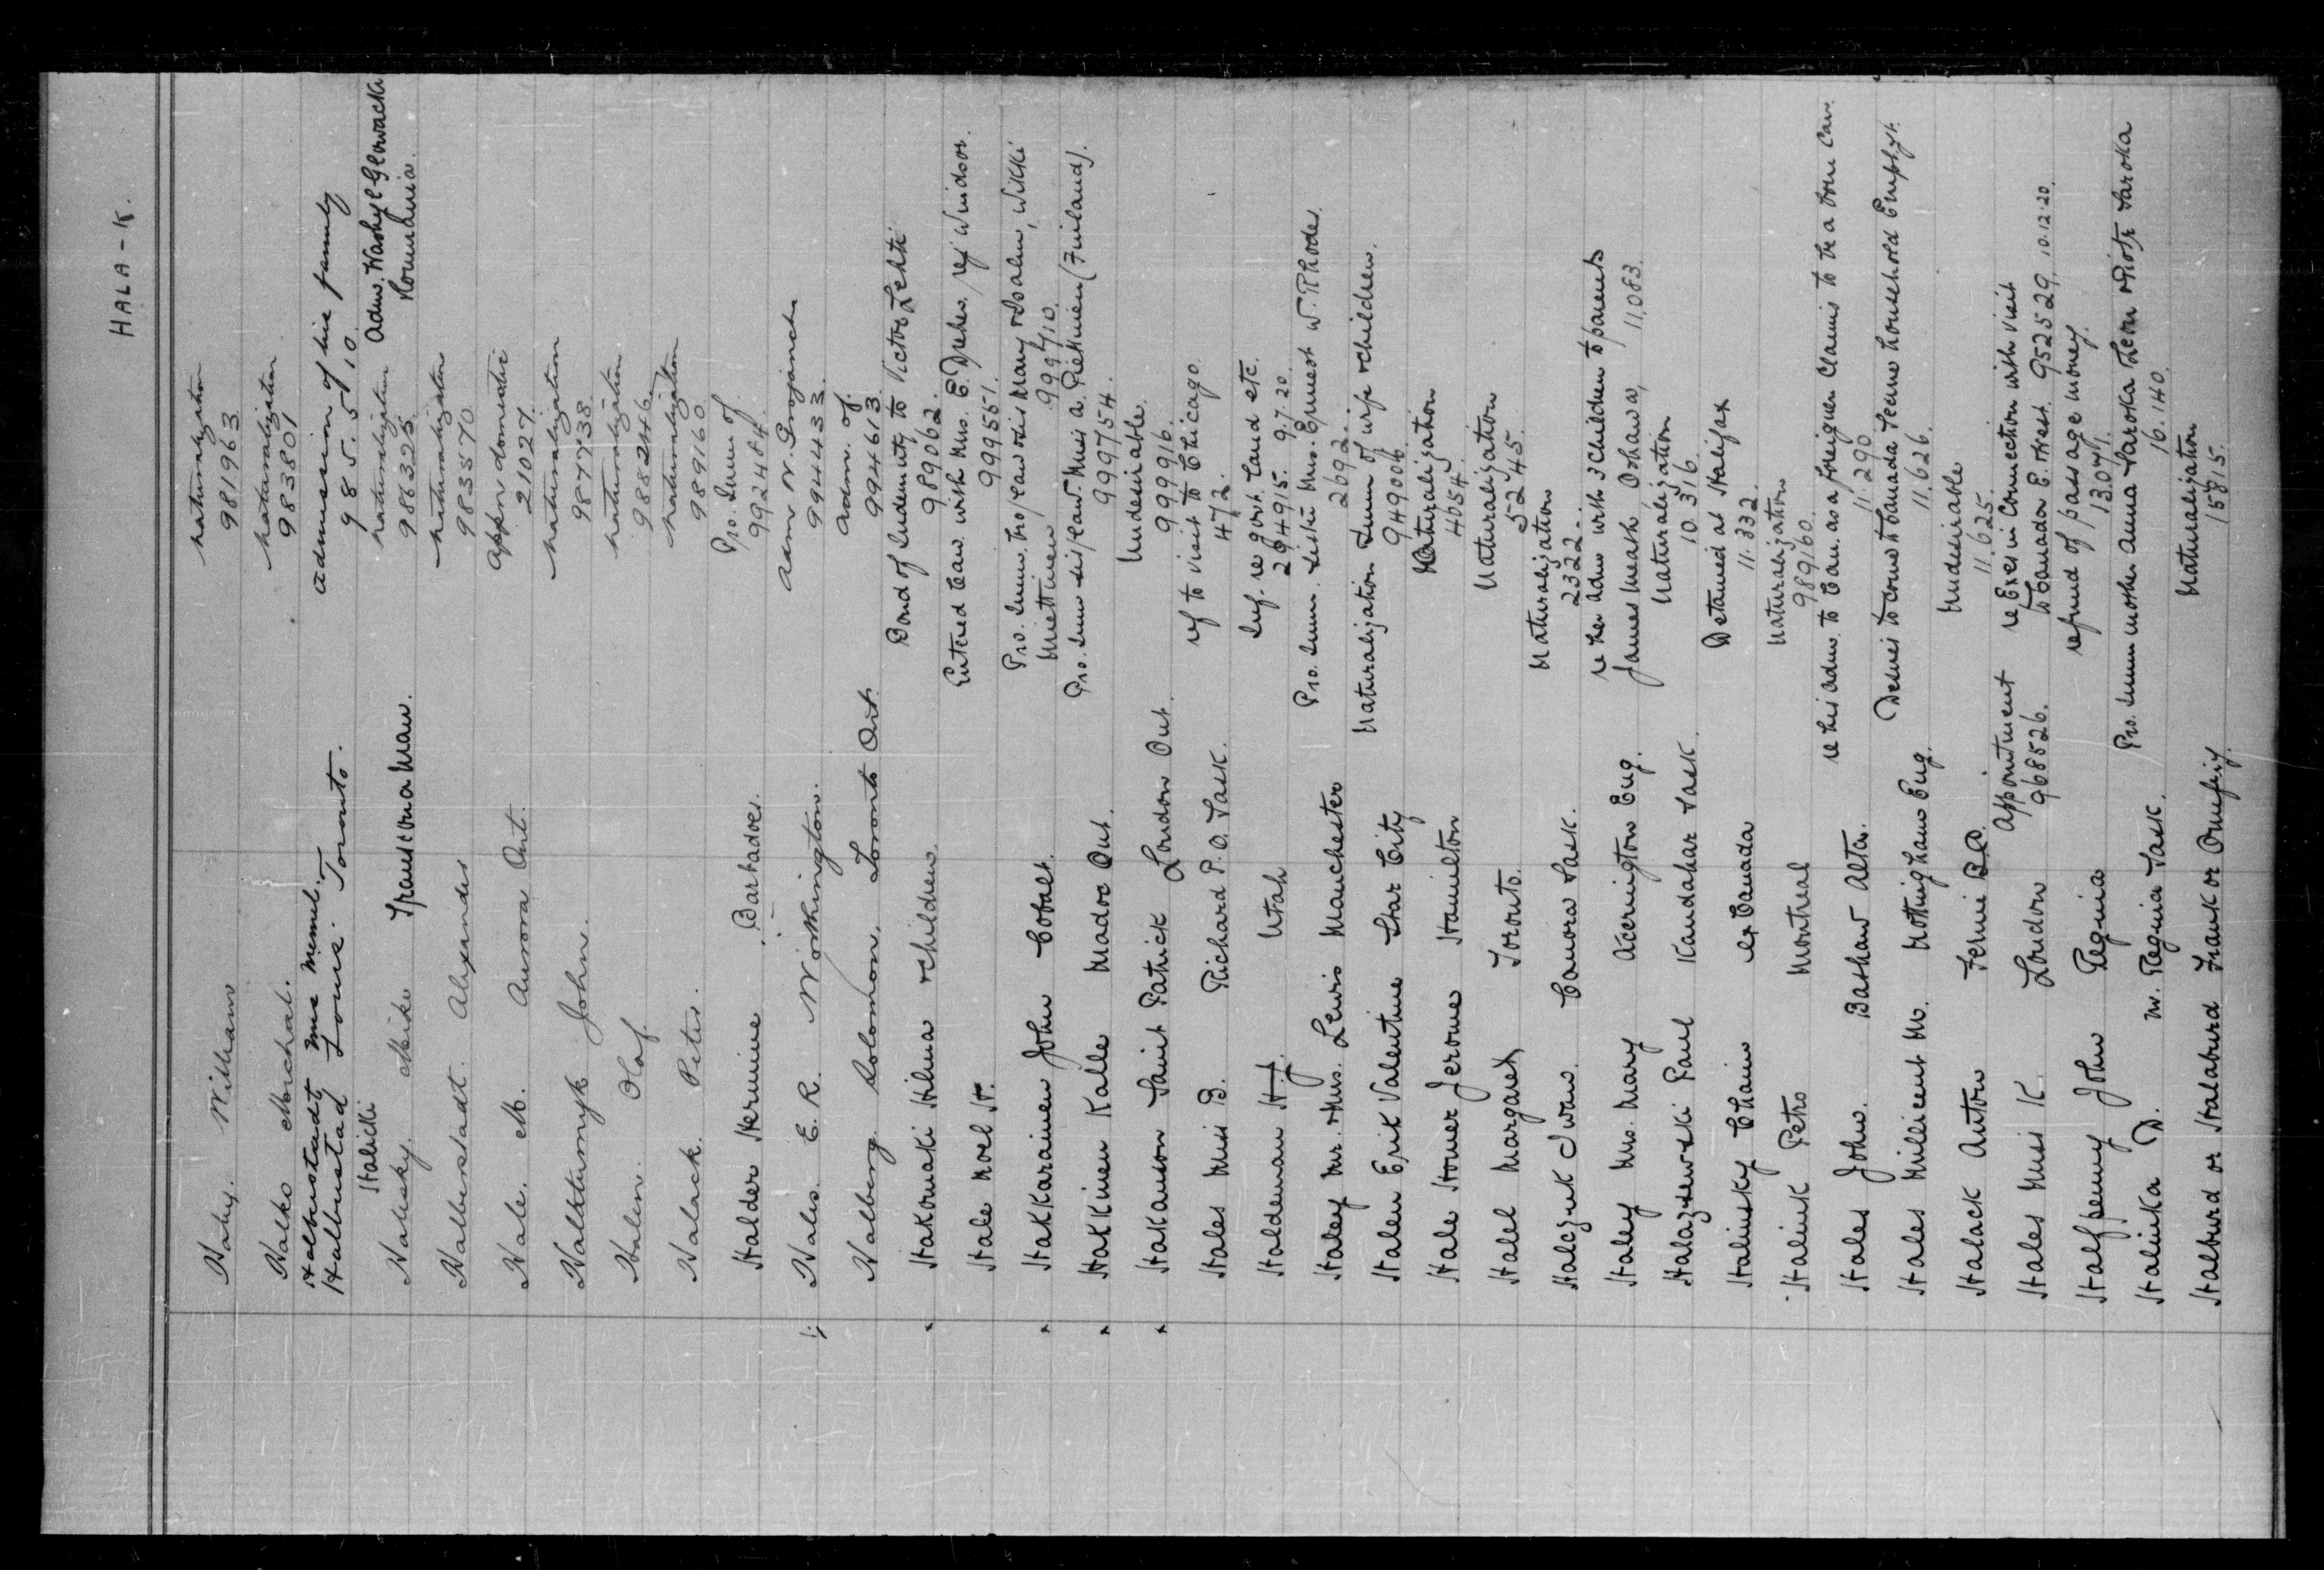 HALA-K.
Haley. William naturalization
981963
Halko Michal. naturalization
983801
Halbustadt Mrs Meml.
Halbustad Louis. Toronto. admission of his family
985510
Halicki
Halisky. Mike Transcona Man. naturalization Adm. Wasyl Glowacki
986325 Roumania.
Halberstadt. Alexander naturalization
983570
Hale. M. Aurora Ont. appn domestic
21027.
Halkturnyk John. naturalization
987738
Halin. Olaf. naturalization
988246
Halack. Peter. naturalization
989160
Halder Hermine Barbadoes. Pro. Imm of
992484.
Hales. E. R. Workington. Adm W.
994433.
Halberg. Solomon. Toronto Ont. adm. of.
994613
Hakomaki Hilma & children Bond of Indemnity to Victor Lehti
989062.
Hale Noel H. Entered Can. with Mrs. E. Dreher, rej Windsor.
999551.
Hakkarainen John Cobalt. Pro. Imm. Mary & Salm, Wikki
Miettinen 999710.
Hakkinen Kalle Madoc Ont. Pro. Imm Miss A. Pietinien (Finland).
999754.
Hakanson Saint Patrick London Ont. Undesirable.
999916.
Hales Miss B. Richard P.O. Sask. ref to visit to Chicago.
472.
Haldeman H.J. Utah Inf. re govt. land etc.
294915. 9.7.20.
Haley Mr. & Mrs. Lewis Manchester Pro. Imm. sister Mrs. Ernest W. Rhodes.
2692.
Halen Erik Valentine Star City Naturalization Imm of wife & children.
949006.
Hale Homer Jerome Hamilton Naturalization
4054.
Halel Margaret Toronto. Naturalization
52245.
Halczuk Iwan. Canora Sask. Naturalization
2322.
Haley Mrs. Mary Accrington Eng. re her adm with 3 children to parents
James Oshawa, 11,083.
Halazewski Paul Kandahar Sask. Naturalization
10.316.
Halinsky Chaim ex Canada Detained at Halifax
11.332.
Halink Petro Montreal Naturalization
989160.
Hales John. Bashaw Alta. re his adm. to Can. as a foreigner claims to be a born Can.
11.290
Hales Millicent M. Nottingham Eng. Desires to come to Canada secure household Employt.
11.626.
Halack Anton Fernie B.C. Undesirable
11.625.
Hales Miss K. London Appointment re Exes in connection with visit
968526. to Canada E. West. 952529. 10.12.20.
Halfpenny John Regina refund of passage money.
13.071.
Halinka D. W. Regina Sask. Pro. Imm mother Anna Saroka Leon & Piotr Saroka
16.140.
Halburd or Halaburd Frank or Onufriy. Naturalization
15815.